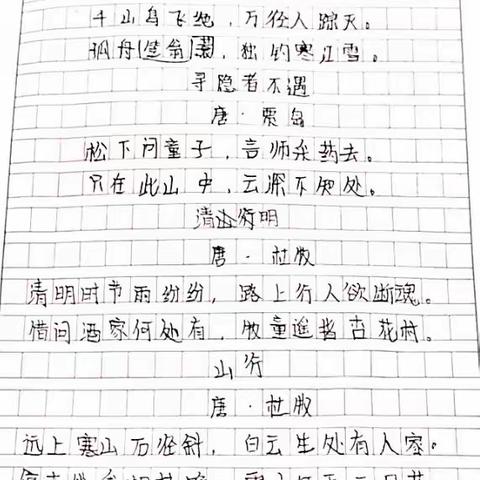 千山鸟飞绝,万径人踪灭。
孤舟笠翁蓑,独钓寒江雪。
寻隐者不遇
唐·贾岛
松下问童子,言师采药去。
只在此山中,云深不知处。
清明
唐·杜牧
清明时节雨纷纷,路上行人欲断魂。
借问酒家何处有,牧童遥指杏花村。
山行
唐·杜牧
远上寒山石径斜,白云生处有人家。